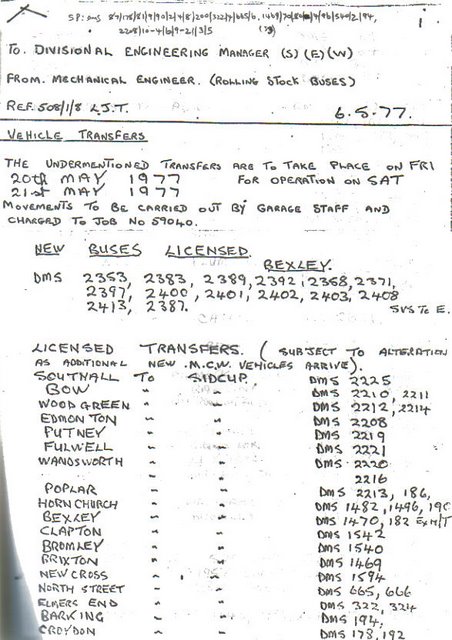 TO. DIVISIONAL ENGINEERING MANAGER (S)(E)(W)
FROM. MECHANICAL ENGINEER. (ROLLING STOCK BUSES)
REF. 508/1/8 L.J.T. 6.5.77.
VEHICLE TRANSFERS
THE UNDERMENTIONED TRANSFERS ARE TO TAKE PLACE ON FRI
20th MAY 1977 FOR OPERATION ON SAT
21st MAY 1977
MOVEMENTS TO BE CARRIED OUT BY GARAGE STAFF AND
CHARGED TO JOB NO 59040.
NEW BUSES LICENSED
BEXLEY.
DMS 2353, 2383, 2389, 2392, 2368, 2371,
2397, 2400, 2401, 2402, 2403, 2408
2413, 2387. SVS TO E.
LICENSED TRANSFERS. (SUBJECT TO ALTERATION
AS ADDITIONAL NEW M.C.W. VEHICLES ARRIVE).
SOUTHALL TO SIDCUP. DMS 2225
BOW " " DMS 2210, 2211
WOOD GREEN " " DMS 2212, 2214
EDMONTON " " DMS 2208
PUTNEY " " DMS 2219
FULWELL " " DMS 2221
WANDSWORTH " " DMS 2220
" " 2216
POPLAR " " DMS 2213, 186,
HORNCHURCH " " DMS 1482, 1496, 190
BEXLEY " " DMS 1470, 182
CLAPTON " " DMS 1542
BROMLEY " " DMS 1540
BRIXTON " " DMS 1469
NEW CROSS " " DMS 1594
NORTH STREET " " DMS 665, 666
ELMERS END " " DMS 322, 324
BARKING " " DMS 194,
CROYDON " " DMS 178, 192